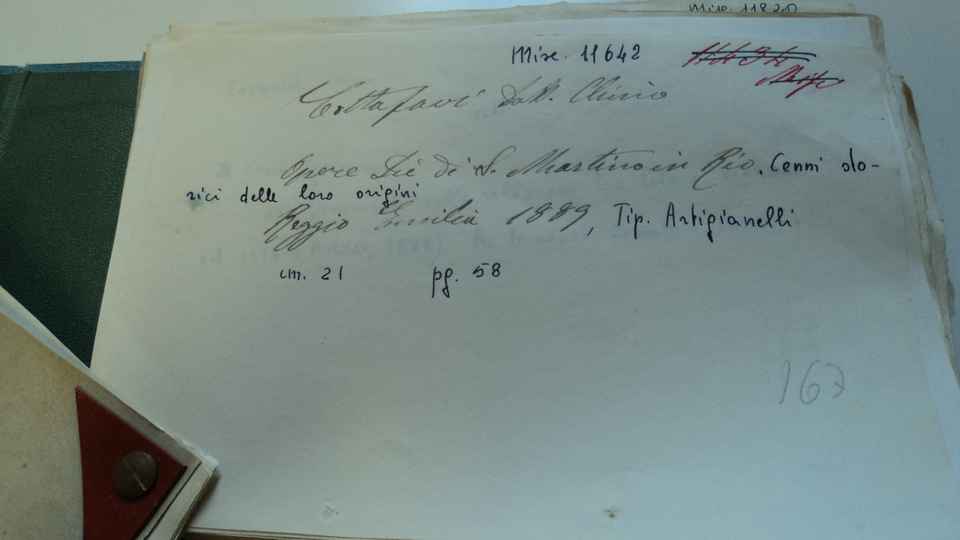 Misc. 11820
Misc. 11642
Cottafavi Dott. Clinio
Opere Pie di S. Martino in Rio. Cenni sto-
rici delle loro origini
Reggio Emilia 1889, Tip. Artigianelli
cm. 21 pg. 58
167